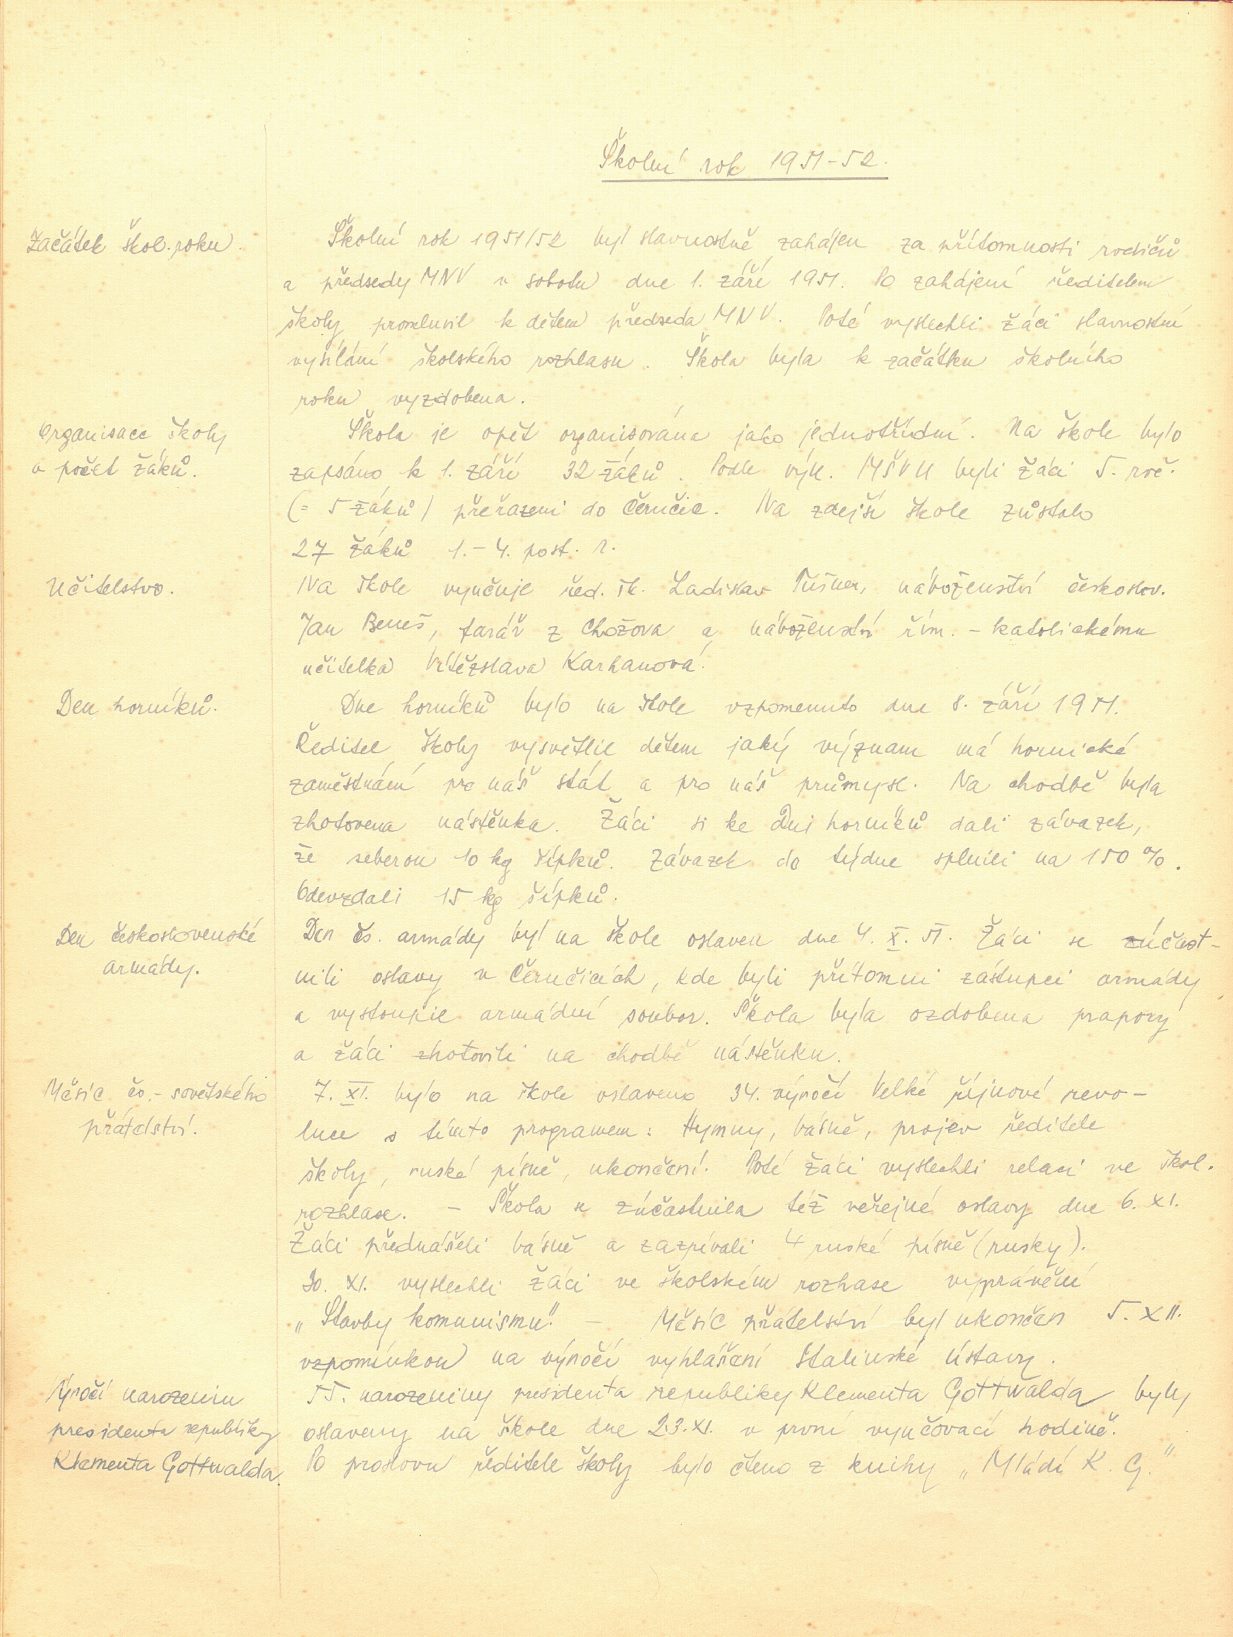 Školní rok 1951-52.
Začátek škol. roku.
Školní rok 1951/52 byl slavnostně zahájen za přítomnosti rodičů
a předsedy MNV v sobotu dne 1. září 1951. Po zahájení ředitelem
školy promluvil k dětem předseda MNV. Poté vyslechli žáci slavnostní
vysílání školského rozhlasu. Škola byla k začátku školního
roku vyzdobena.
Organisace školy
a počet žáků.
Škola je opět organisována jako jednotřídní. Na škole bylo
zapsáno k 1. září 32 žáků. Podle výn. MŠVU byli žáci 5. roč.
(= 5 žáků) přeřazeni do Černčic. Na zdejší škole zůstalo
27 žáků 1.-4. post. r.
Učitelstvo.
Na škole vyučuje řed. šk. Ladislav náboženství českoslov.
Jan Beneš, farář z Chožova a náboženství řím. - katolickému
učitelka Vítězslava Karhanová.
Den horníků.
Dne horníků bylo na škole vzpomenuto dne 8. září 1951.
Ředitel školy vysvětlil dětem jaký význam má hornické
zaměstnání pro náš stát a pro náš průmysl. Na chodbě byla
zhotovena nástěnka. Žáci si ke Dni horníků dali závazek,
že seberou 10 kg šípků. Závazek do týdne splnili na 150 %.
Odevzdali 15 kg šípků.
Den československé
armády.
Den čs. armády byl na škole oslaven dne 4. X. 51. Žáci se zúčast-
nili oslavy v Černčicích, kde byli přítomni zástupci armády
a vystoupil armádní soubor. Škola byla ozdobena prapory
a žáci zhotovili na chodbě nástěnku.
Měsíc čs.-sovětského
přátelství.
7. XI. bylo na škole oslaveno 34. výročí Velké říjnové revo-
luce s tímto programem: Hymny, básně, projev ředitele
školy, ruské písně, ukončení. Poté žáci vyslechli relaci ve škol.
rozhlase. - Škola se zúčastnila též veřejné oslavy dne 6. XI.
Žáci přednášeli básně a zazpívali 4 ruské písně (rusky).
XI. vyslechli žáci ve školském rozhase vyprávění
„Stavby komunismu". - Měsíc přátelství byl ukončen 5. XII.
vzpomínkou na výročí vyhlášení Stalinské ústavy.
Výročí narozenin
presidenta republiky
Klementa Gottwalda.
55. narozeniny presidenta republiky Klementa Gottwalda byly
oslaveny na škole dne 23. XI. v první vyučovací hodině.
Po proslovu ředitele školy bylo čteno z knihy „Mládí K. G."